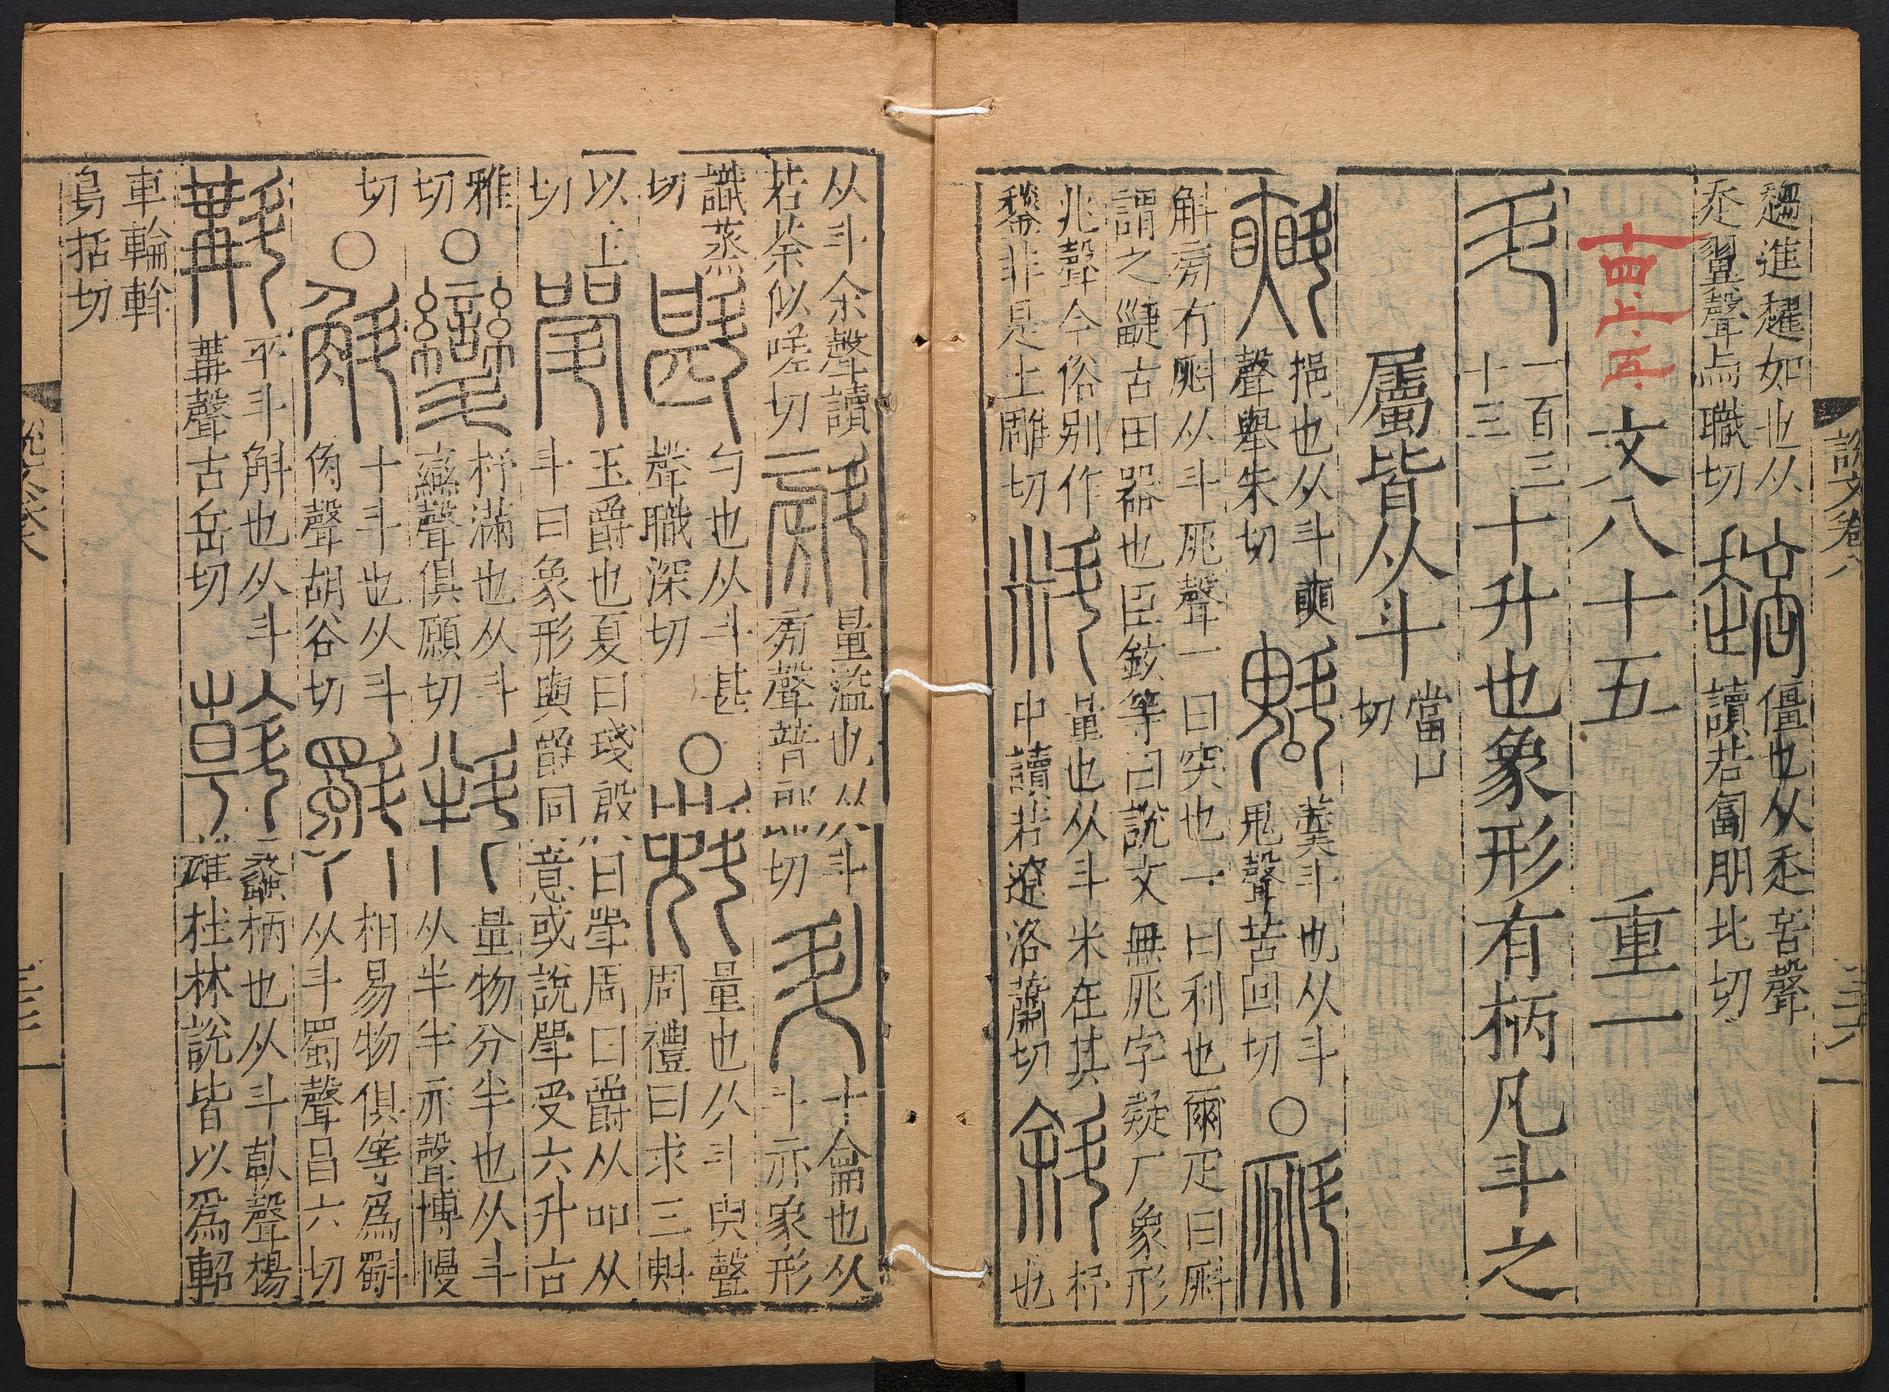 說文卷八
趨進趩如也从
辵翼聲与職切
僵也从走咅聲
讀若匐朋北切
十四上、五、
文八十五　重一
斗
一百三
十三
十升也象形有柄凡斗之
屬皆从斗
當口
切
挹也从斗奭
聲舉朱切
魁
羹斗也从斗
鬼聲苦回切
○
斛旁有㪶从斗𠩓聲一曰突也一曰利也爾疋曰㪶
謂之疀古田器也臣鉉等曰說文無𠩓字疑厂象形
兆聲今俗別作
鍫非是土雕切
料
量也从斗米在其
中讀若遼洛蕭切
斜
杼
也
从斗余聲讀
若荼似嗟切
㪵
量溢也从斗
旁聲普郎切
升
十龠也从
斗亦象形
識蒸
切
斟
勺也从斗甚
聲職深切
○
斞
量也从斗臾聲
周禮曰求三斞
以主
切
斝
玉爵也夏曰琖殷曰斝周曰爵从吅从
斗曰象形與爵同意或說斝受六升古
雅
切
○
杼滿也从斗
䜌聲俱願切
量物分半也从斗
从半半亦聲博幔
切
○
斛
十斗也从斗
角聲胡谷切
相易物俱等爲㪽
从斗蜀聲昌六切
斠
平斗斛也从斗
冓聲古岳切
斡
蠡柄也从斗倝聲楊
雄杜林說皆以爲軺
車輪斡
烏括切
說文卷八